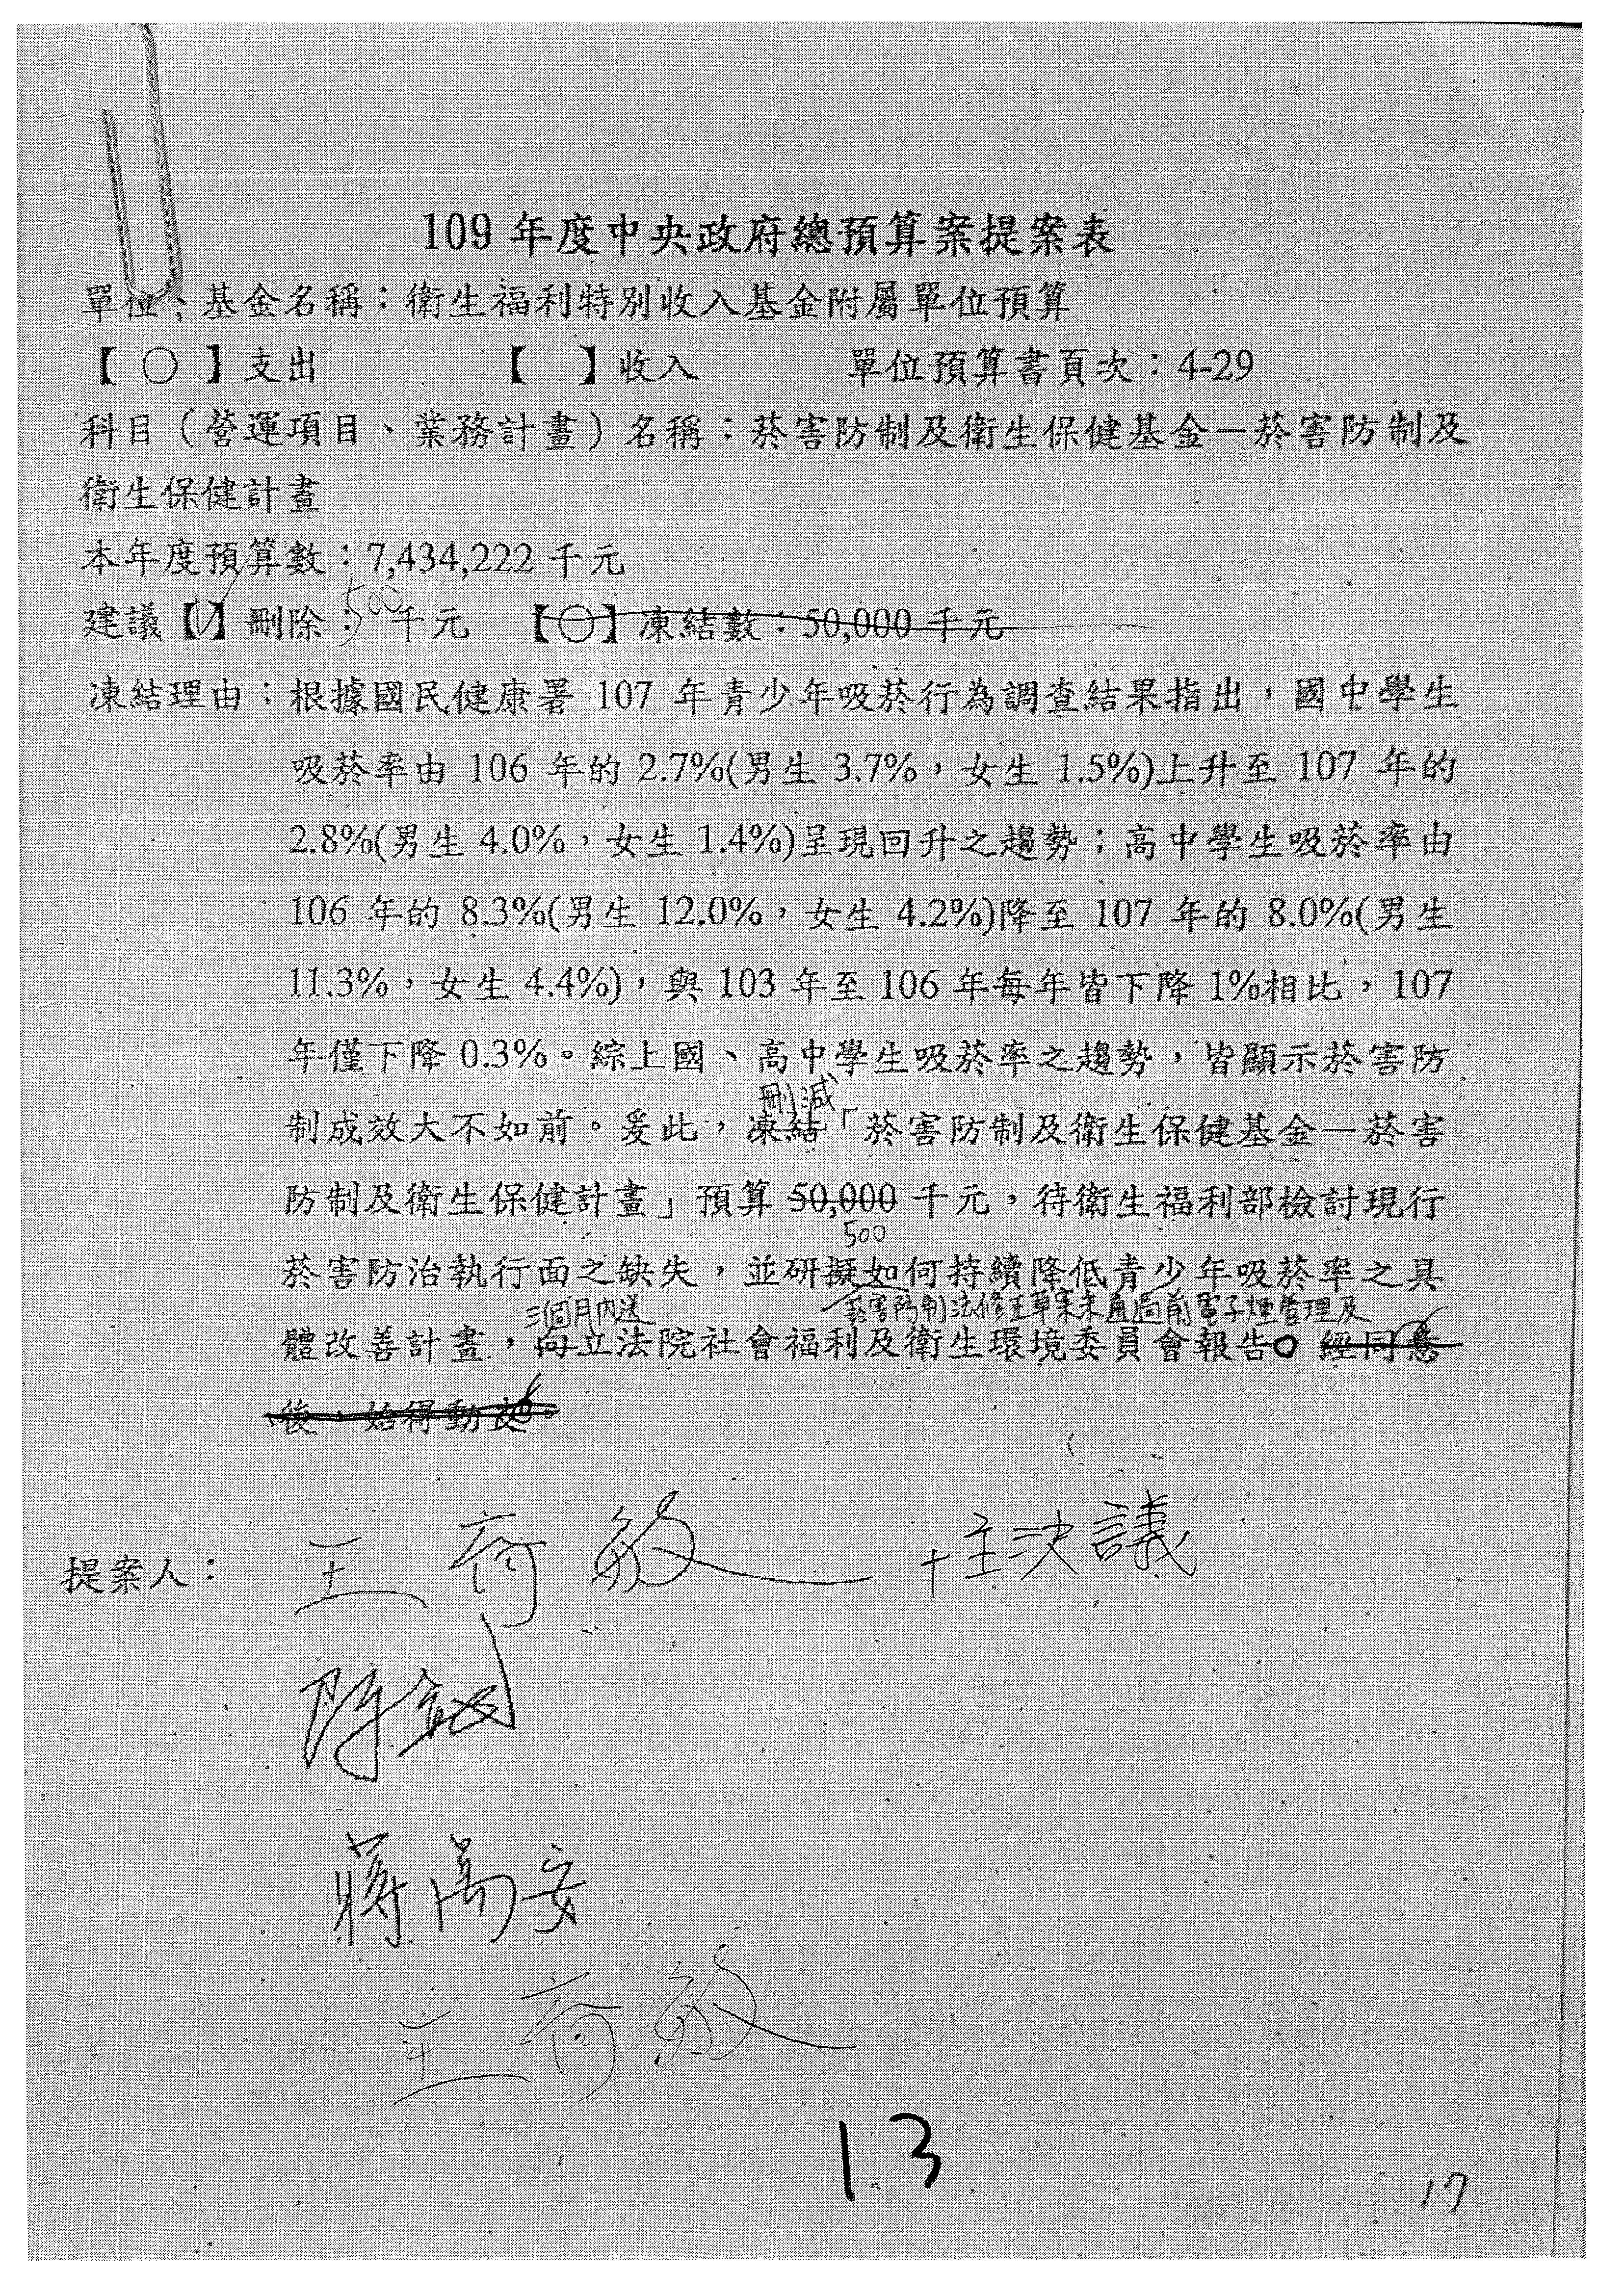 109 年度中央政府總預算案提案表
單位、基金名稱：衛生福利特別收入基金附屬單位預算
【 ○ 】支出 【 】收入 單位預算書頁次：4-29
科目（營運項目、業務計畫）名稱：菸害防制及衛生保健基金－菸害防制及
衛生保健計畫
本年度預算數：7,434,222 千元
500
建議【V】刪除： 千元 【○】凍結數：50,000 千元
凍結理由：根據國民健康署 107 年青少年吸菸行為調查結果指出，國中學生
吸菸率由 106 年的 2.7%(男生 3.7%，女生 1.5%)上升至 107 年的
2.8%(男生 4.0%，女生 1.4%)呈現回升之趨勢；高中學生吸菸率由
106 年的 8.3%(男生 12.0%，女生 4.2%)降至 107 年的 8.0%(男生
11.3%，女生 4.4%)，與 103 年至 106 年每年皆下降 1%相比，107
年僅下降 0.3%。綜上國、高中學生吸菸率之趨勢，皆顯示菸害防
刪減
制成效大不如前。爰此，凍結「菸害防制及衛生保健基金－菸害
防制及衛生保健計畫」預算 50,000 千元，待衛生福利部檢討現行
500
菸害防治執行面之缺失，並研擬如何持續降低青少年吸菸率之具
三個月內送 菸害防制法修正草案未通過前電子煙管理及
體改善計畫，向立法院社會福利及衛生環境委員會報告。經同意
後，始得動支。
提案人： 王育敏 +主決議
陳宜民
蔣萬安
王育敏
13
17